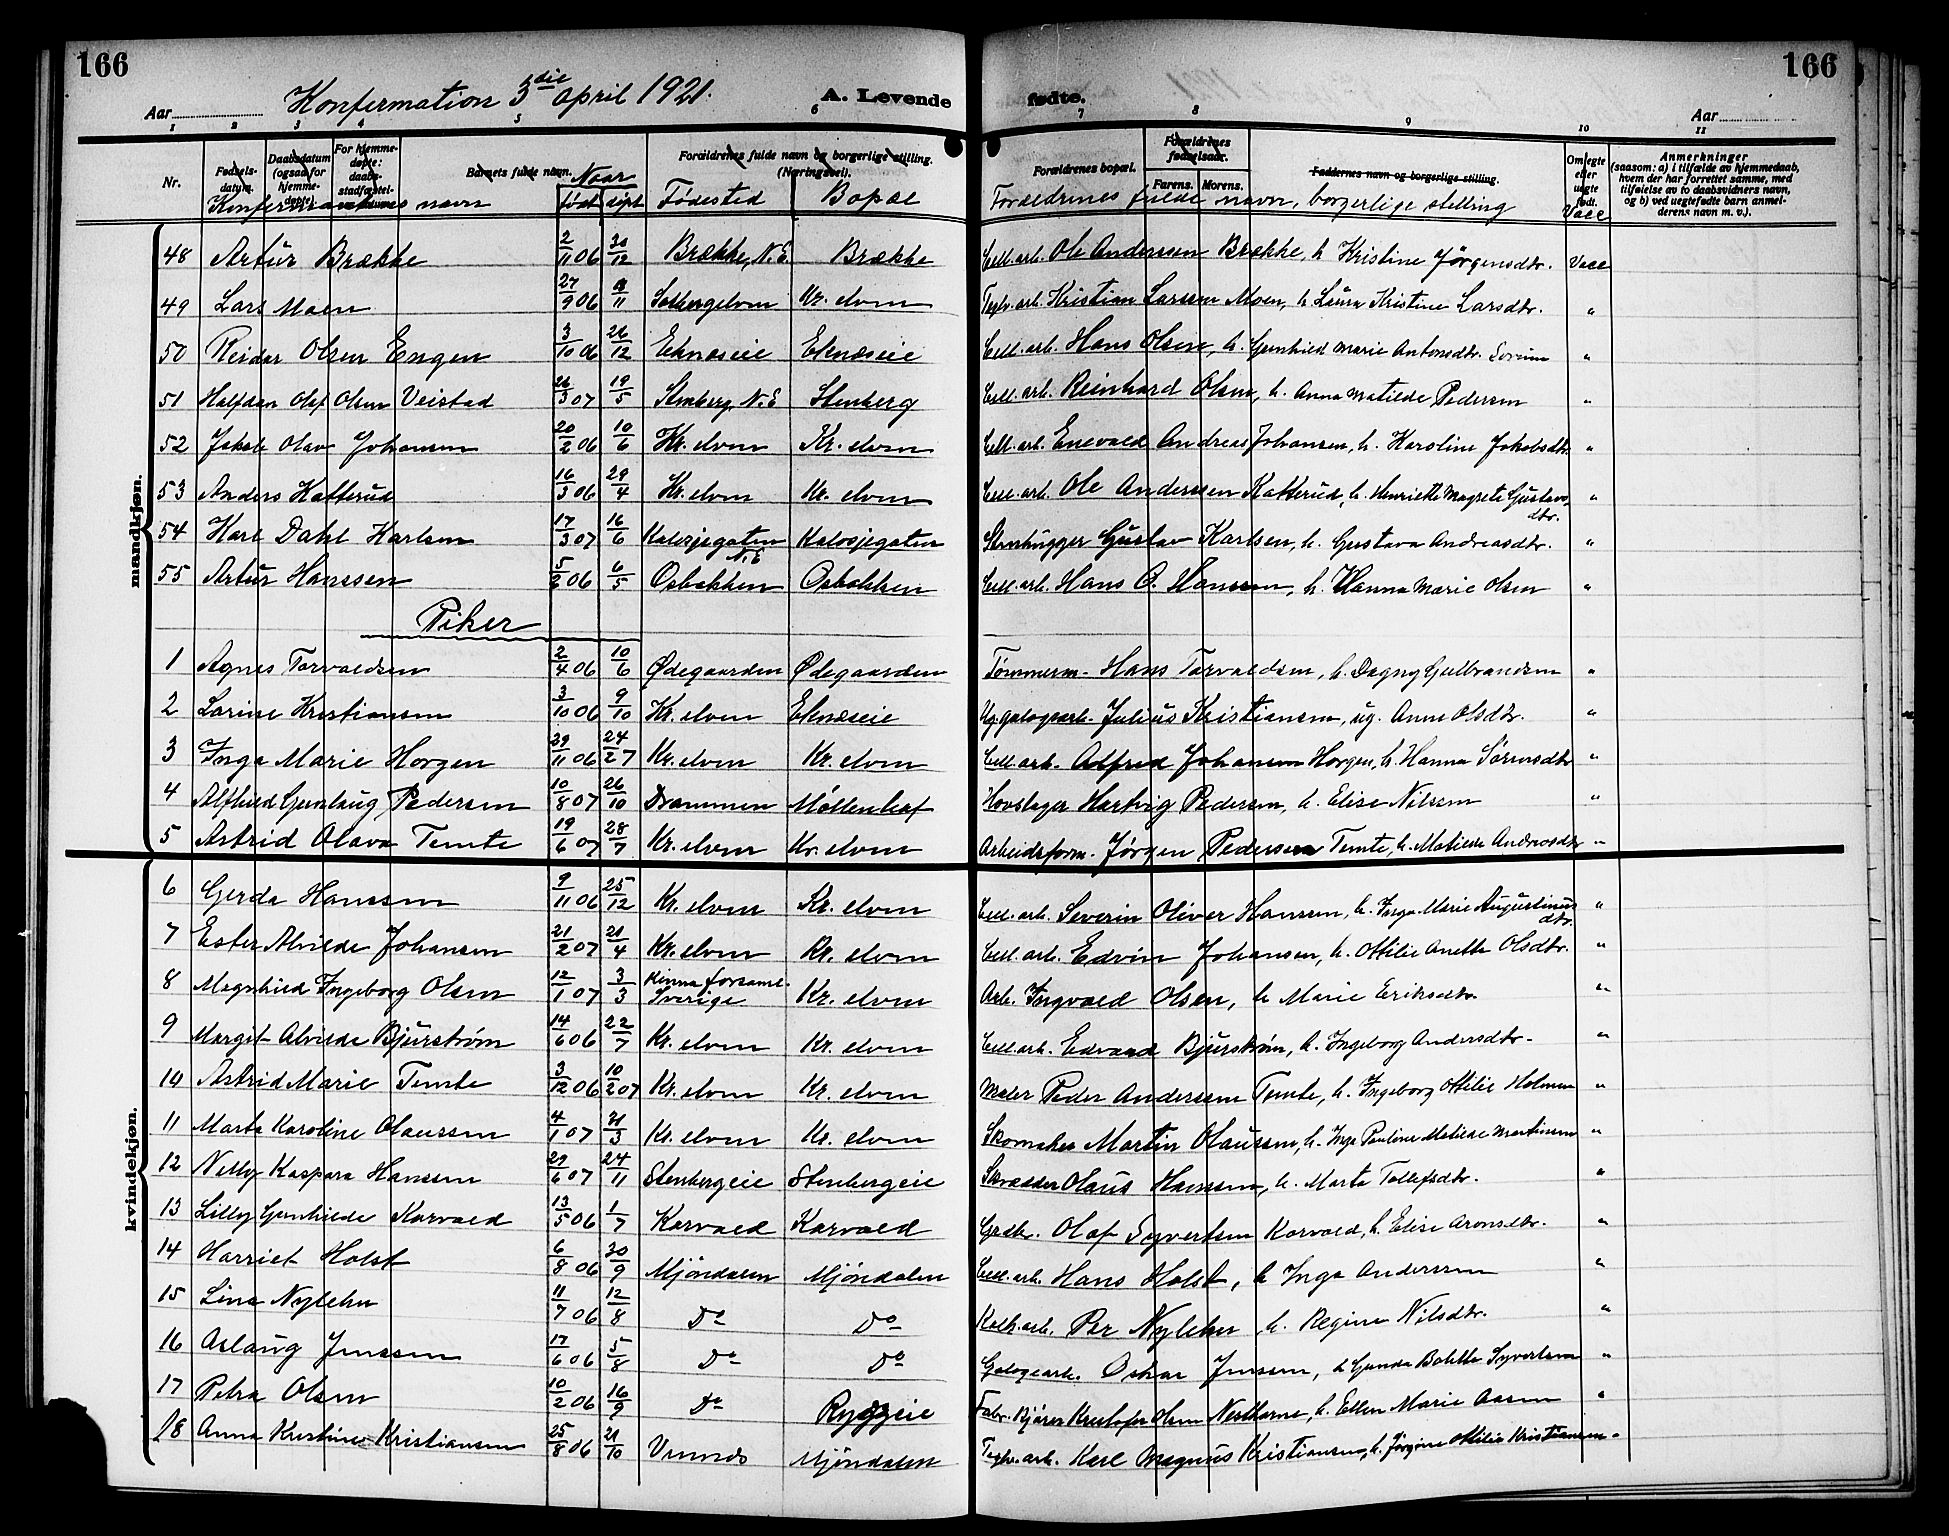 166
166
Aar
Konfermation 3die april 1921.
A. Levende fødte.
Aar
1 2 3 4 5 6 7 8 9 10 11
Nr.
Fødsels-datum.
Daabsdatum (ogsaa for hjemme-døpte).
For hjemme-døpte: daabs-stadfæstel-
Barnets fulde navn.
Forældrenes fulde navn og borgerlige stilling. (Næringsvei).
Forældrenes bopæl.
Forældrenes fødselsaar.
Farens. Morens.
Faddernes navn og borgerlige stilling.
Om egte eller uegte født.
Anmerkninger (saasom: a) i tilfælde av hjemmedaab, hvem der har forrettet samme, med tilføielse av to daabsvidners navn, og b) ved uegtefødte barn anmelderens navn m. v.).
Konfermantenes navn Naar født døpt Fødested Bopæl Forældrenes fulde navn, borgerlige stilling Vacc
mandkjøn.
48 Artur Brække 2/11 06 30/12 Brække, N.E. Brække Cell. arb. Ole Anderssen Brække, h. Kristine Jørgensdtr. Vacc
49 Lars Moen 27/9 06 /11 Solbergelven Kr. elven Teglv. arb. Kristian Larssen Moen, h. Laura Kristine Larsdtr. "
50 Reidar Olsen Engen 3/10 06 26/12 Eknæseie Eknæseie Cell. arb. Hans Olsen, h. Gunhild Marie Antonsdtr. Sørum "
51 Halfdan Olaf Olsen Veistad 26/3 07 19/5 Stenberg, N.E. Stenberg Cell. arb. Reinhard Olsen, h. Anna Matilde Pedersen "
52 Jakob Olav Johansen 20/2 06 10/6 Kr. elven Kr. elven Cell. arb. Enevald Andreas Johansen, h. Karoline Jakobsdtr. "
53 Anders Katterud 16/3 06 29/4 Kr. elven Kr. elven Cell. arb. Ole Anderssen Katterud, h. Henriette Magrete Gustavsdtr. "
54 Karl Dahl Karlsen 17/3 07 16/6 Kalosjegaten N.E. Kalosjegaten Stenhugger Gustav Karlsen, h. Gustava Andreasdtr. "
55 Artur Hanssen 5/2 06 6/5 Osbakken Osbakken Cell. arb. Hans O. Hanssen, h. Hanna Marie Olsen "
Piker
1 Agnes Torvaldsen 2/4 06 10/6 Ødegaarden Ødegaarden Tømmerm. Hans Torvaldsen, h. Dagny Gulbrandsen "
2 Larine Kristiansen 3/10 06 9/10 Kr. elven Eknæseie Ug. galogearb. Julius Kristiansen, ug. Anna Olsdtr. "
3 Inga Marie Horgen 29/11 06 24/2 7 Kr. elven Kr. elven Cell. arb. Alfred Johansen Horgen, h. Hanna Sørensdtr. "
4 Alfhild Gunlaug Pedersen 10/8 07 26/10 Drammen Møllenhof Hovslager Hartvig Pedersen, h. Elise Nilssen "
5 Astrid Olava Temte 19/6 07 28/7 Kr. elven Kr. elven Arbeidsform. Jørgen Pedersen Temte, h. Matilde Andreasdtr. "
kvindekjøn.
6 Gerda Hanssen 9/11 06 25/12 Kr. elven Kr. elven Cell. arb. Severin Oliver Hanssen, h. Inga Marie Augustinusdtr. "
7 Ester Alvilde Johansen 21/2 07 21/4 Kr. elven Kr. elven Cell. arb. Edvin Johansen, h. Ottilie Anette Olsdtr. "
8 Magnhild Ingeborg Olsen 12/1 07 3/3 Kinna forsaml. Sverige Kr. elven Arb. Ingvald Olsen, h. Marie Eriksdtr. "
9 Margit Alvilde Bjurstrøm 14/6 06 22/7 Kr. elven Kr. elven Cell. arb. Edvard Bjurstrøm, h. Ingeborg Andersdtr. "
10 Astrid Marie Temte 3/12 06 10/2 07 Kr. elven Kr. elven Maler Peder Anderssen Temte, h. Ingeborg Ottilie Holmen "
11 Marta Karoline Olaussen 4/1 07 31/3 Kr. elven Kr. elven Skomaker Martin Olaussen, h. Inga Pauline Matilde Martinsen "
12 Nelly Kaspara Hanssen 29/6 07 24/11 Stenbergeie Stenbergeie Skrædder Olaus Hanssen, h. Marta Tollefsdtr. "
13 Lilly Gunhilde Korvald 13/5 06 1/7 Korvald Korvald Grdbr. Olaf Syvertsen Korvald, h. Elise Aronsdtr. "
14 Harriet Holst 6/8 06 30/9 Mjøndalen Mjøndalen Cell. arb. Hans Holst, h. Inga Anderssen "
15 Lina Nylehn 11/7 06 12/8 Do Do Kalk. arb. Per Nylehn, h. Regine Nilsdtr. "
16 Aslaug Jenssen 17/6 06 5/8 Do Do Galogearb. Oskar Jenssen, h. Gunda Bolette Syvertsen "
17 Petra Olsen 10/2 06 16/9 Do Ryggeie Fabr. Bjørn Kristofer Olsen Nesthorne, h. Ellen Marie Aasen "
18 Anna Kristine Kristiansen 25/8 06 21/10 Vinnes Mjøndalen Teglv. arb. Karl Magnus Kristiansen, h. Jørgine Ottilie Kristiansen "